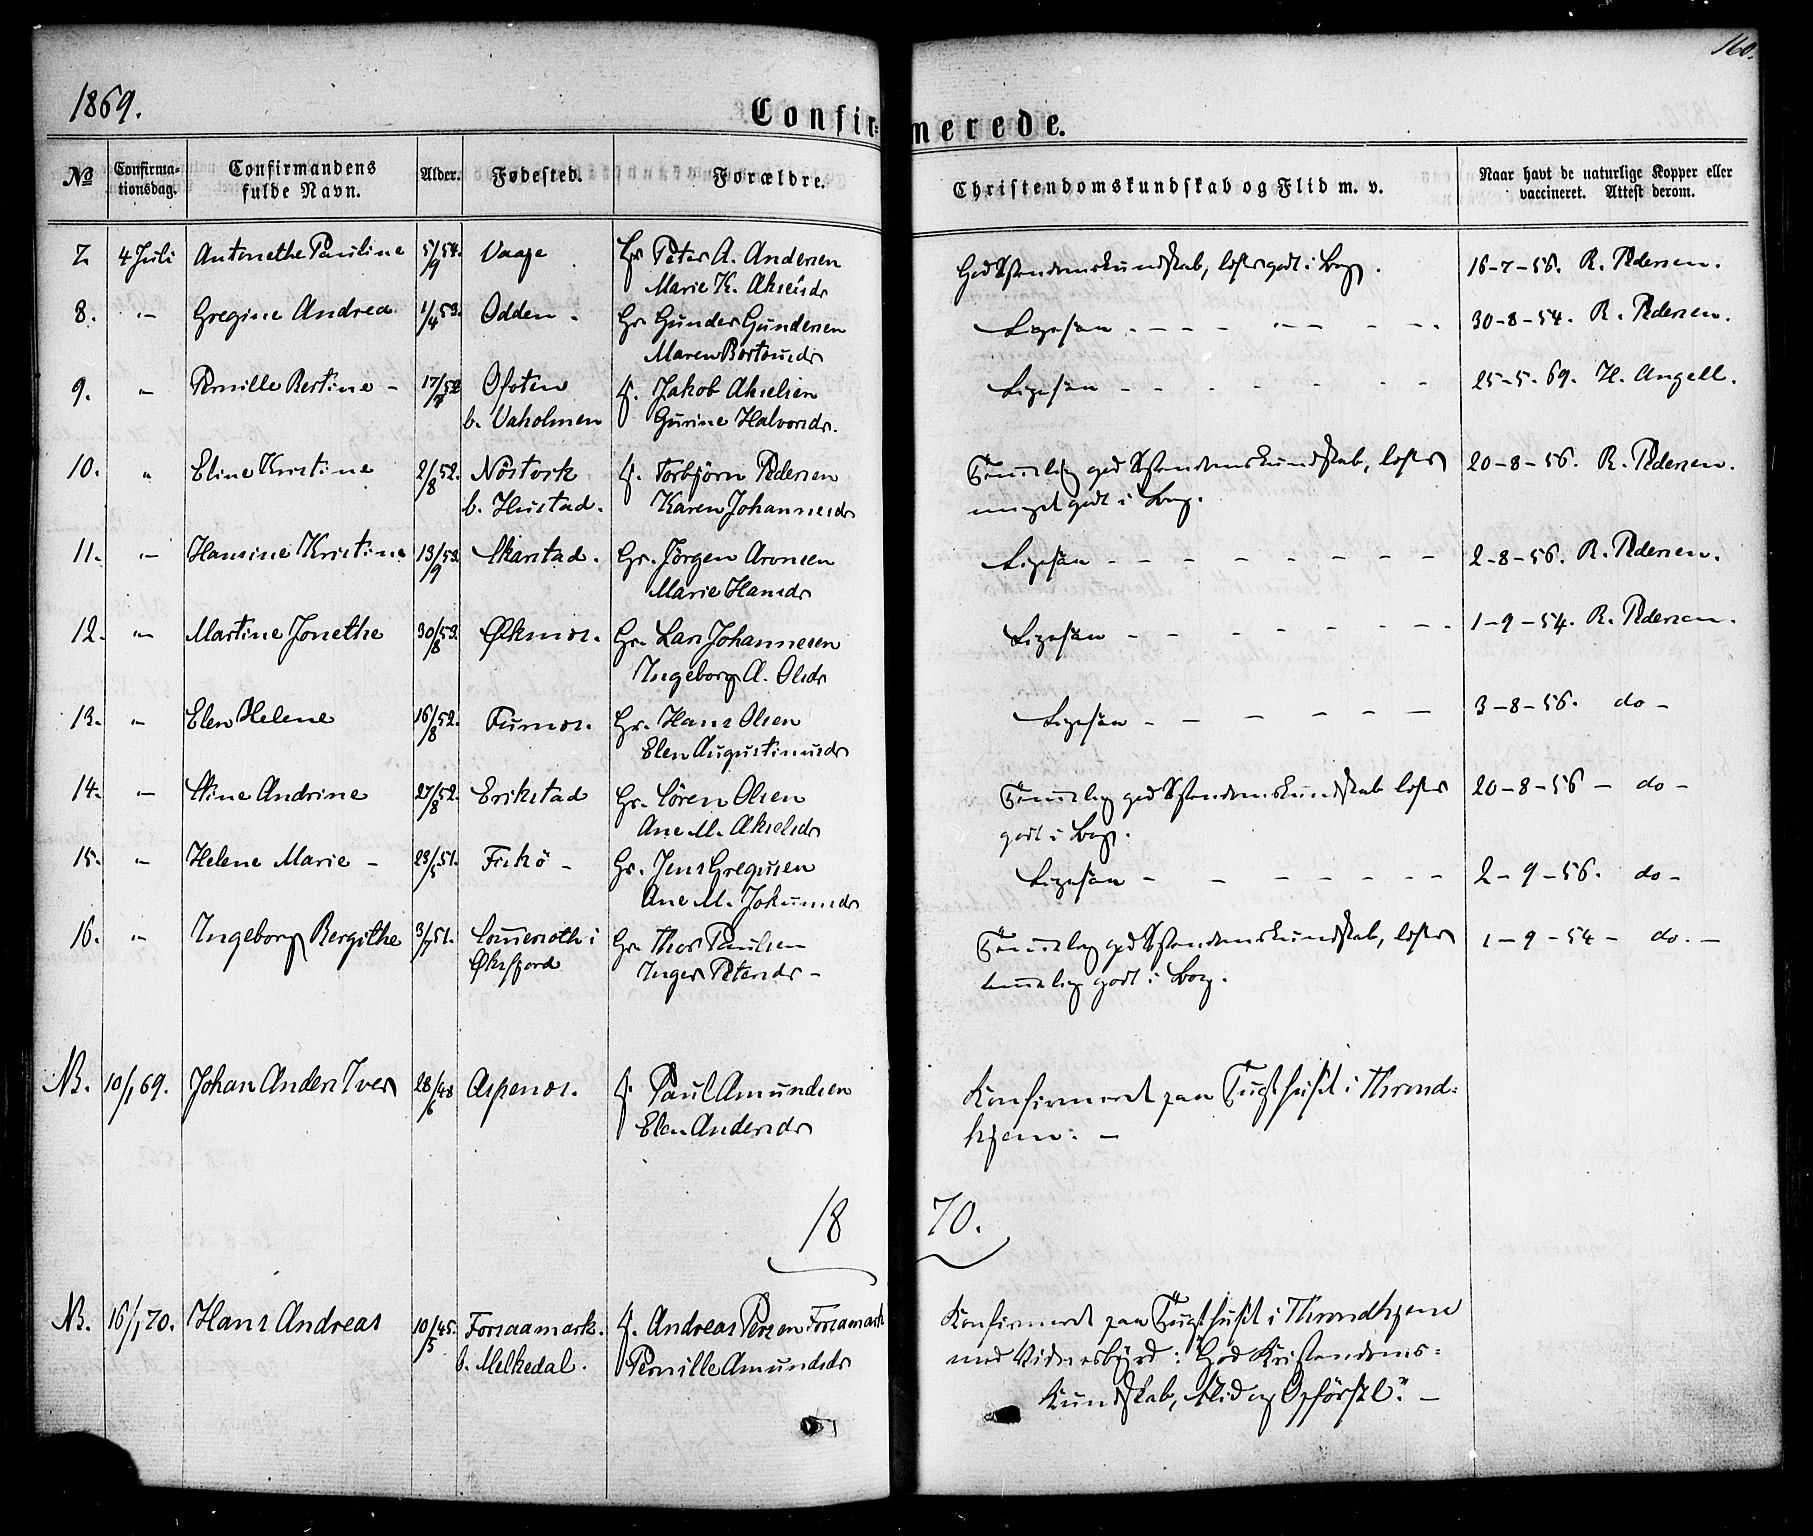 160.
1869.
Confirmerede.
No
Confirmationsdag.
Confirmandens fulde Navn.
Alder.
Fødested.
Forældre.
Christendomskundskab og Flid m. v.
Naar havt de naturlige Kopper eller vaccineret. Attest derom.
7. 4 Juli Antonethe Pauline 5/9 54. Vaage Gr Peter A. Andersen God Kristendomskundskab, læser godt i Bog. 16-7-56. R. Pedersen.
Marie K. Akselsdr
8. " Gregine Andrea 1/4 53. Odden. Gr Gunder Gundersen Ligesaa 30-8-54. R. Pedersen.
Maren
9. " Pernille Bertine 17/7 52 Ofoten f. Jakob Akselsen Ligesaa 25-5-69. H. Angell.
b. Vaholmen Gurine Halvorsdr.
10. " Eline Kristine 2/8 52. Nöstvik f. Torbjörn Pedersen Temmelig god Kristendomskundskab, læser 20-8-56. R. Pedersen.
b. Hustad. Karen Johannesdr meget godt i Bog.
11. " Hansine Kristine 13/9 53. Skarstad. Gr. Jörgen Aronsen Ligesaa 2-8-56. R. Pedersen.
Marie Hansdr
12. " Martine Jonethe 30/8 53. Øksnes. Gr. Lars Johannesen Ligesaa 1-9-54. R. Pedersen.
Ingeborg A. Olsdr
13. " Elen Helene 16/8 52. Furnes. Gr. Hans Olsen Ligesaa 3-8-56. do
Elen Augustinusdr
14. " Stine Andrine 27/8 52. Erikstad Gr. Sören Olsen Temmelig god Kristendomskundskab læser 20-8-56 do
Ane M. Akselsdr godt i Bog.
15. " Helene Marie 23/5 51. Fiskö Gr. Jens Gregusen Ligesaa 2-9-56. do
Ane M. Jokumsdr
16. " Ingeborg Bergithe 3/7 51. i Gr. Thor Paulsen Temmelig god Kristendomskundskab, læser 1-9-54 do.
Øksfjord Inger Petersdr temmelig godt i Bog.
NB. 10/1 69. Johan Anders Iver 28/6 48 Aspenes. f. Paul Amundsen Konfirmeret paa Tugthuset i Thrond-
Elen Andersdr hjem.
18 70.
NB. 16/1 70. Hans Andreas 10/5 45. Forsaamark. f. Andreas Persen Forsaamark Konfirmeret paa Tugthuset i Throndhjem
b. Melkedal. Pernille Amundsdr med Vidnesbyrd: "God Kristendoms-
Kundskab, Flid og Opförsel."